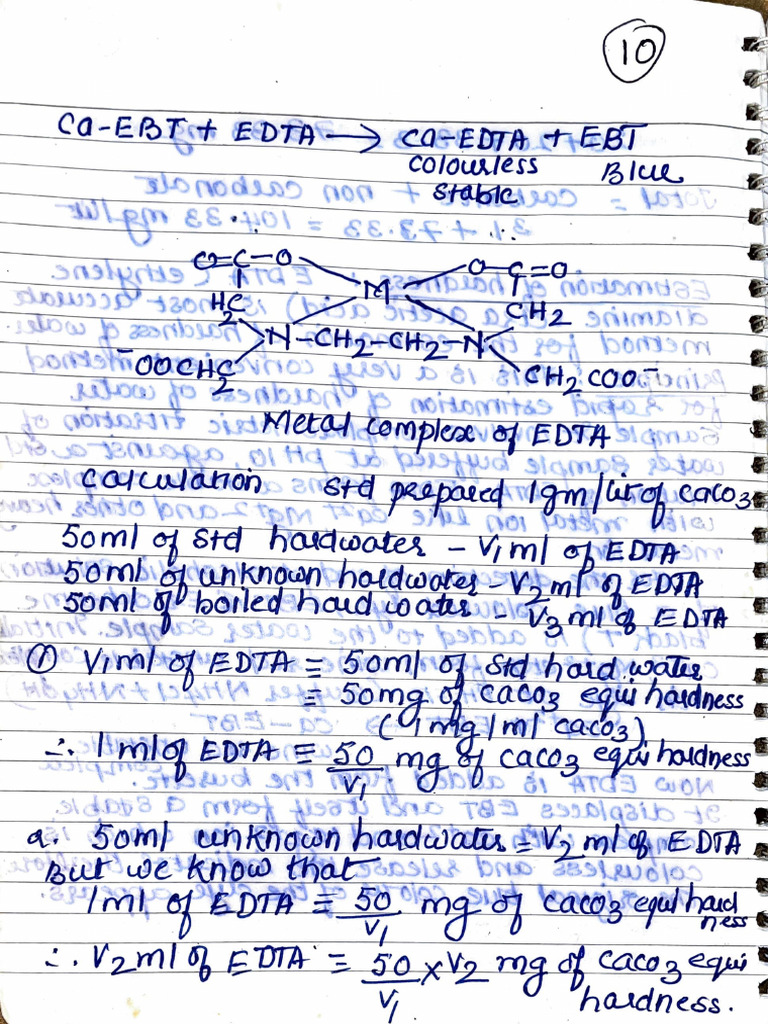 10
Ca-EBT + EDTA → Ca-EDTA + EBT
colourless Blue
stable
O=C-O O-C=O
M
H2C CH2
N-CH2-CH2-N
-OOCH2C CH2COO-
Metal complex of EDTA
Calculation Std prepared 1gm/lit of CaCO3
50ml of Std hardwater - V1 ml of EDTA
50ml of unknown hardwater - V2 ml of EDTA
50ml of boiled hard water - V3 ml of EDTA
① V1 ml of EDTA = 50ml of Std hard water
= 50mg of CaCO3 equi hardness
(1mg/ml CaCO3)
∴ 1ml of EDTA = 50/V1 mg of CaCO3 equi hardness
2. 50ml unknown hardwater = V2 ml of EDTA
But we know that
1ml of EDTA = 50/V1 mg of CaCO3 equi hardness
∴ V2 ml of EDTA = 50/V1 × V2 mg of CaCO3 equi
hardness.